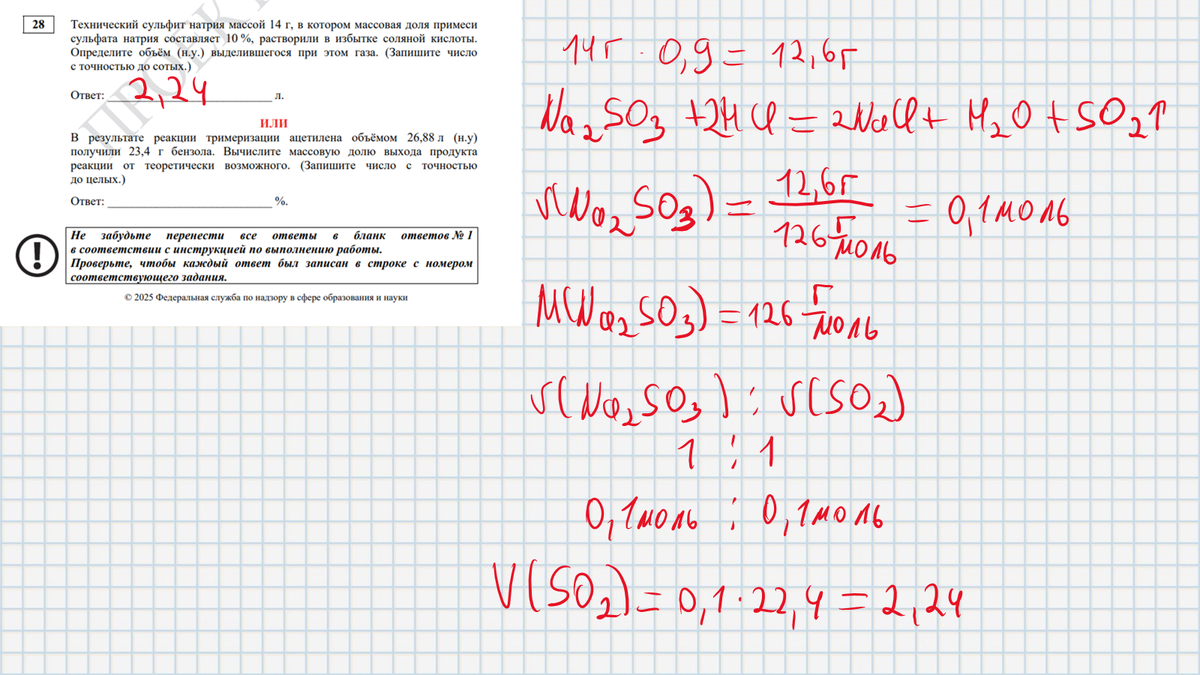 28
Технический сульфит натрия массой 14 г, в котором массовая доля примеси
сульфата натрия составляет 10 %, растворили в избытке соляной кислоты.
Определите объём (н.у.) выделившегося при этом газа. (Запишите число
с точностью до сотых.)
Ответ: 2,24 л.
ИЛИ
В результате реакции тримеризации ацетилена объёмом 26,88 л (н.у)
получили 23,4 г бензола. Вычислите массовую долю выхода продукта
реакции от теоретически возможного. (Запишите число с точностью
до целых.)
Ответ: ___________________________ %.
Не забудьте перенести все ответы в бланк ответов № 1
в соответствии с инструкцией по выполнению работы.
Проверьте, чтобы каждый ответ был записан в строке с номером
соответствующего задания.
© 2025 Федеральная служба по надзору в сфере образования и науки
ПРОЕКТ
14г · 0,9 = 12,6г
Na₂SO₃ + 2HCl = 2NaCl + H₂O + SO₂↑
ν(Na₂SO₃) = 12,6г / 126 г/моль = 0,1 моль
M(Na₂SO₃) = 126 г/моль
ν(Na₂SO₃) : ν(SO₂)
1 : 1
0,1 моль : 0,1 моль
V(SO₂) = 0,1 · 22,4 = 2,24